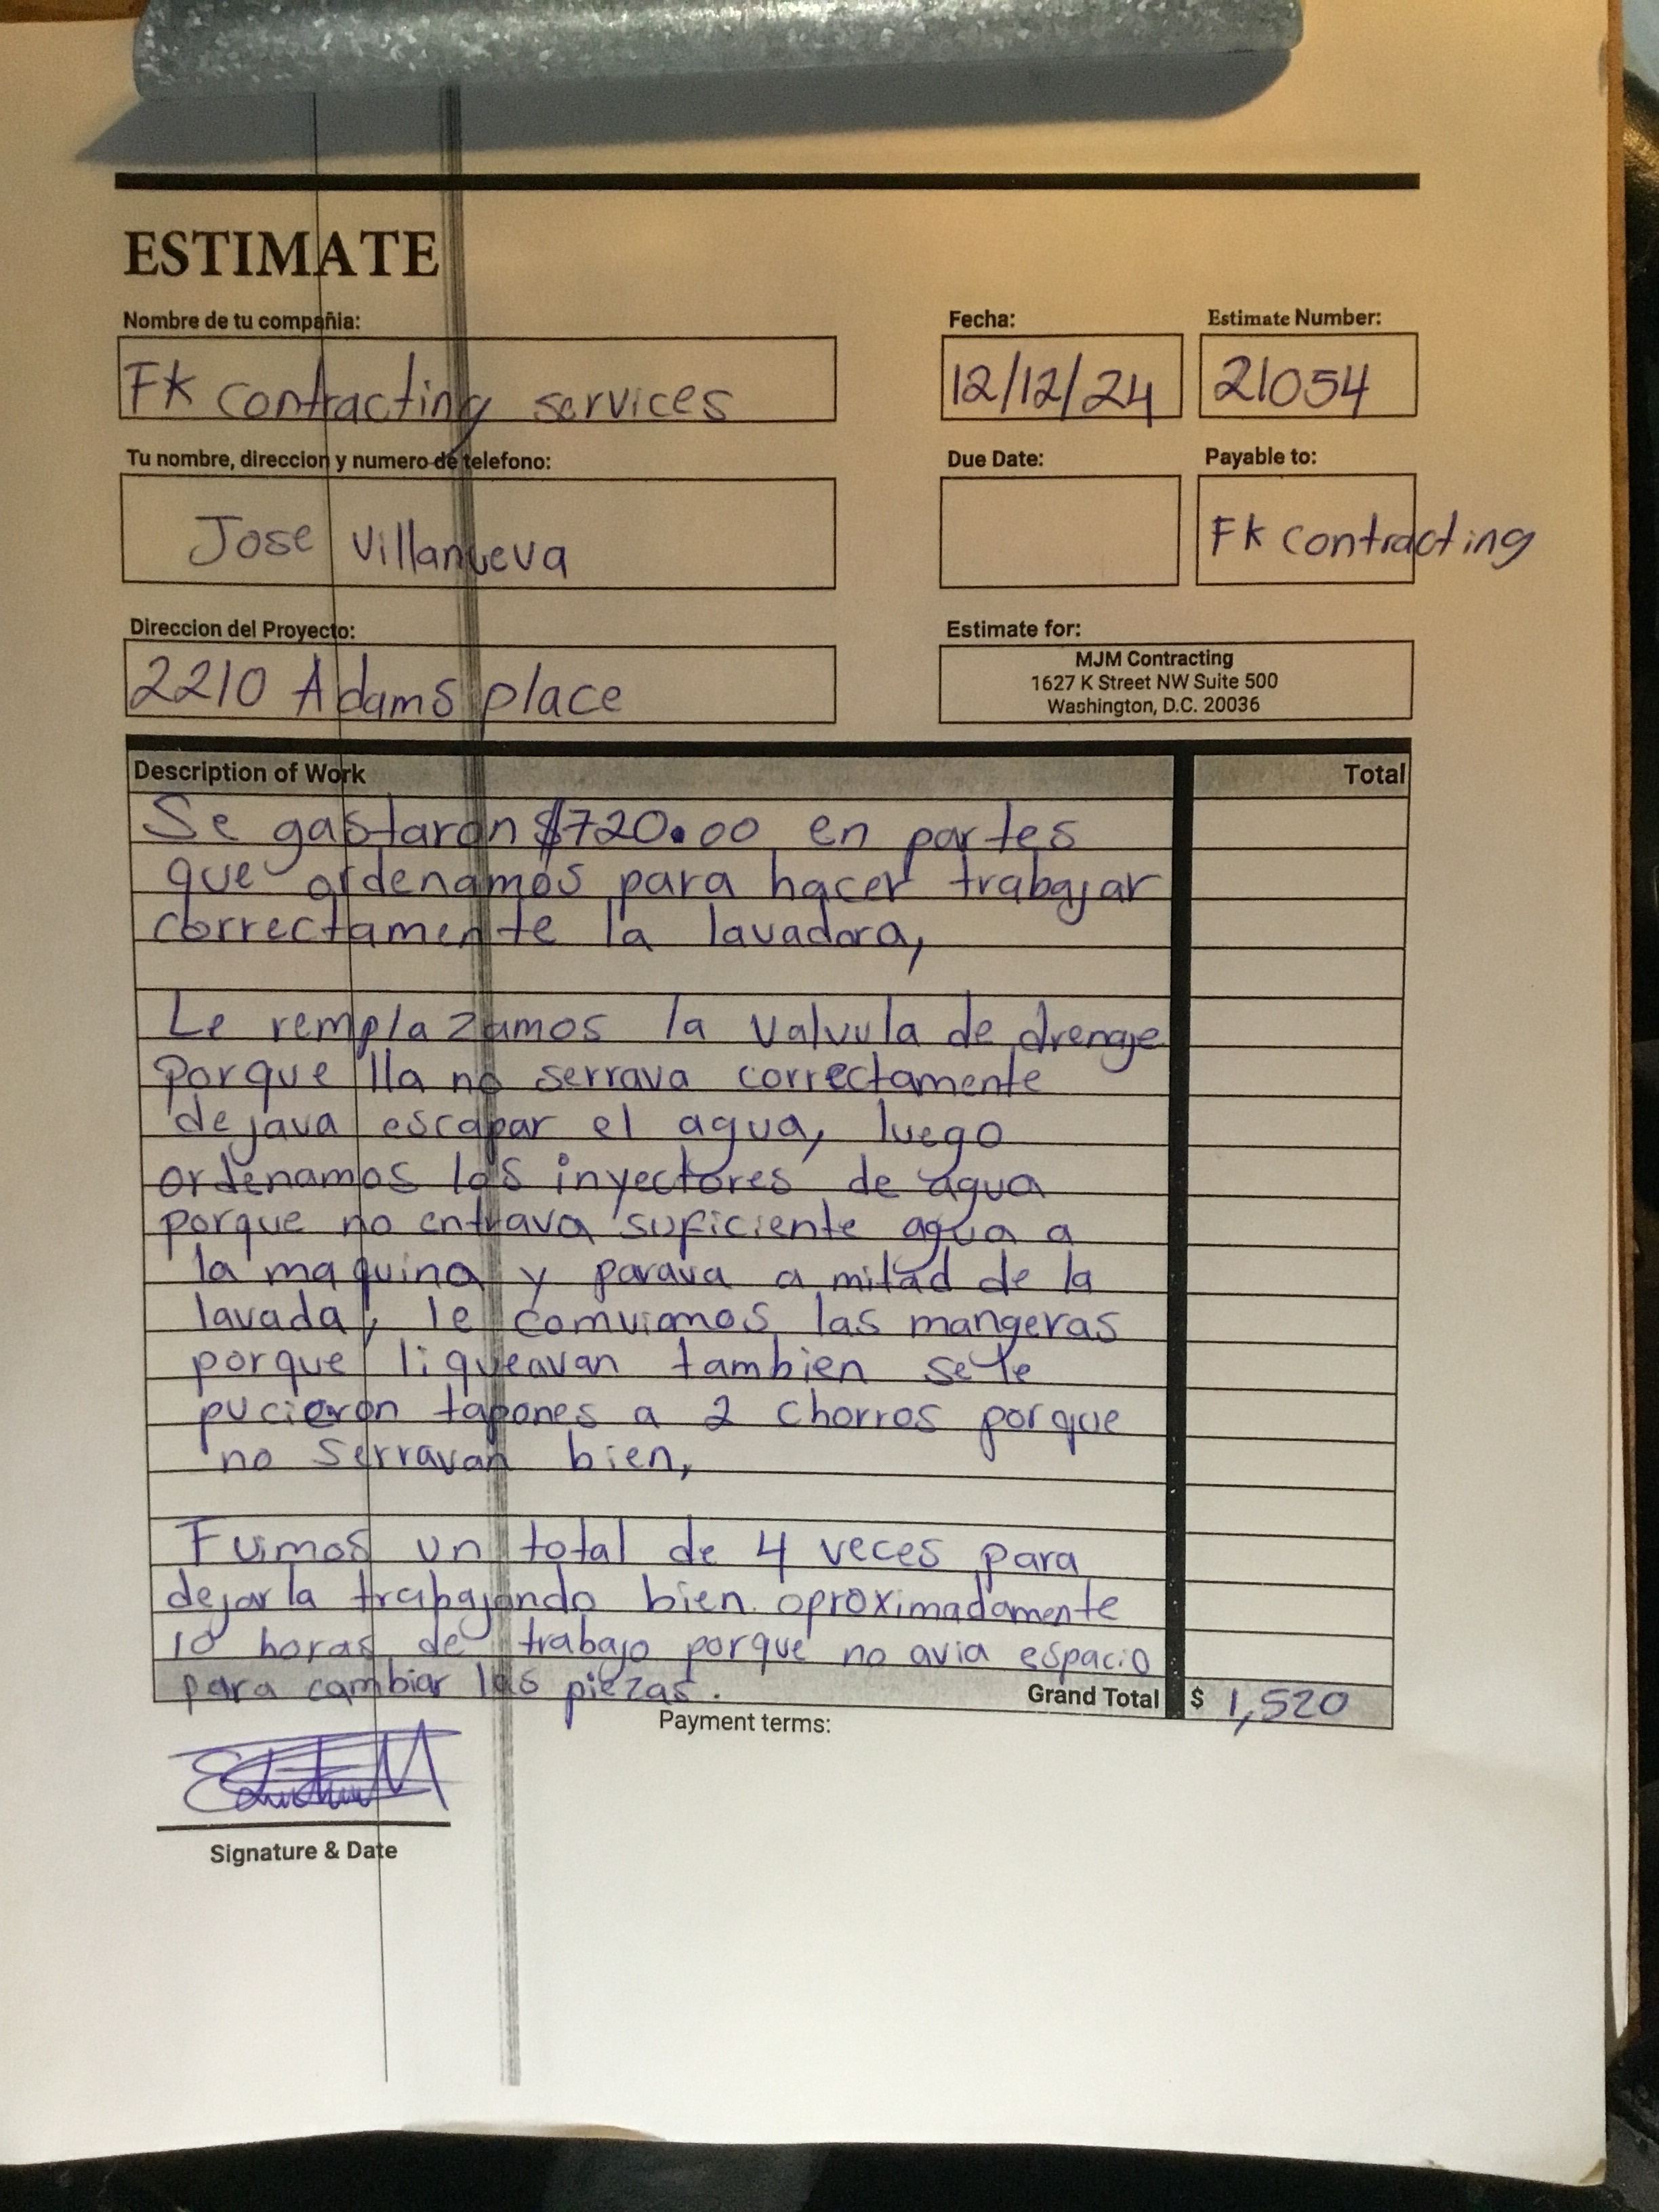 ESTIMATE
Nombre de tu compañia:
FK contracting services
Fecha:
12/12/24
Estimate Number:
21054
Tu nombre, direccion y numero de telefono:
Jose Villanueva
Due Date:
Payable to:
FK contracting
Direccion del Proyecto:
2210 Adams place
Estimate for:
MJM Contracting
1627 K Street NW Suite 500
Washington, D.C. 20036
Description of Work
Total
Se gastaron $720.00 en partes
que ordenamos para hacer trabajar
correctamente la lavadora,
Le remplazamos la valvula de drenaje
porque lla no serrava correctamente
dejava escapar el agua, luego
ordenamos los inyectores de agua
porque no entrava suficiente agua a
la maquina y parava a mitad de la
lavada, le comviamos las mangeras
porque liqueavan tambien se le
pucieron tapones a 2 chorros porque
no serravan bien,
Fuimos un total de 4 veces para
dejarla trabajando bien aproximadamente
10 horas de trabajo porque no avia espacio
para cambiar las piezas.
Grand Total $ 1,520
Payment terms:
Signature & Date